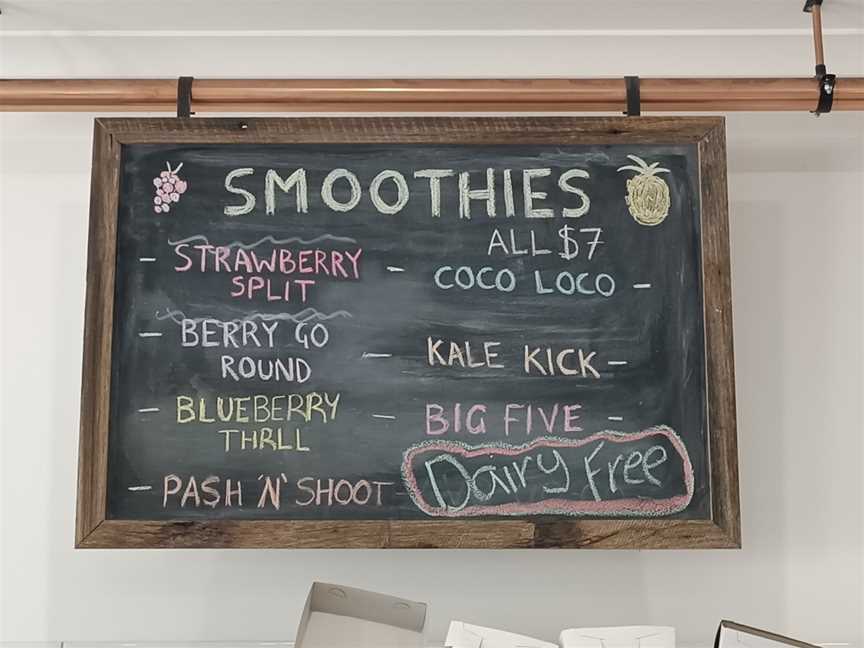 SMOOTHIES
ALL $7
- STRAWBERRY -
SPLIT
- BERRY GO -
ROUND
- BLUEBERRY -
THRLL
- PASH 'N' SHOOT -
COCO LOCO -
KALE KICK -
BIG FIVE -
Dairy Free